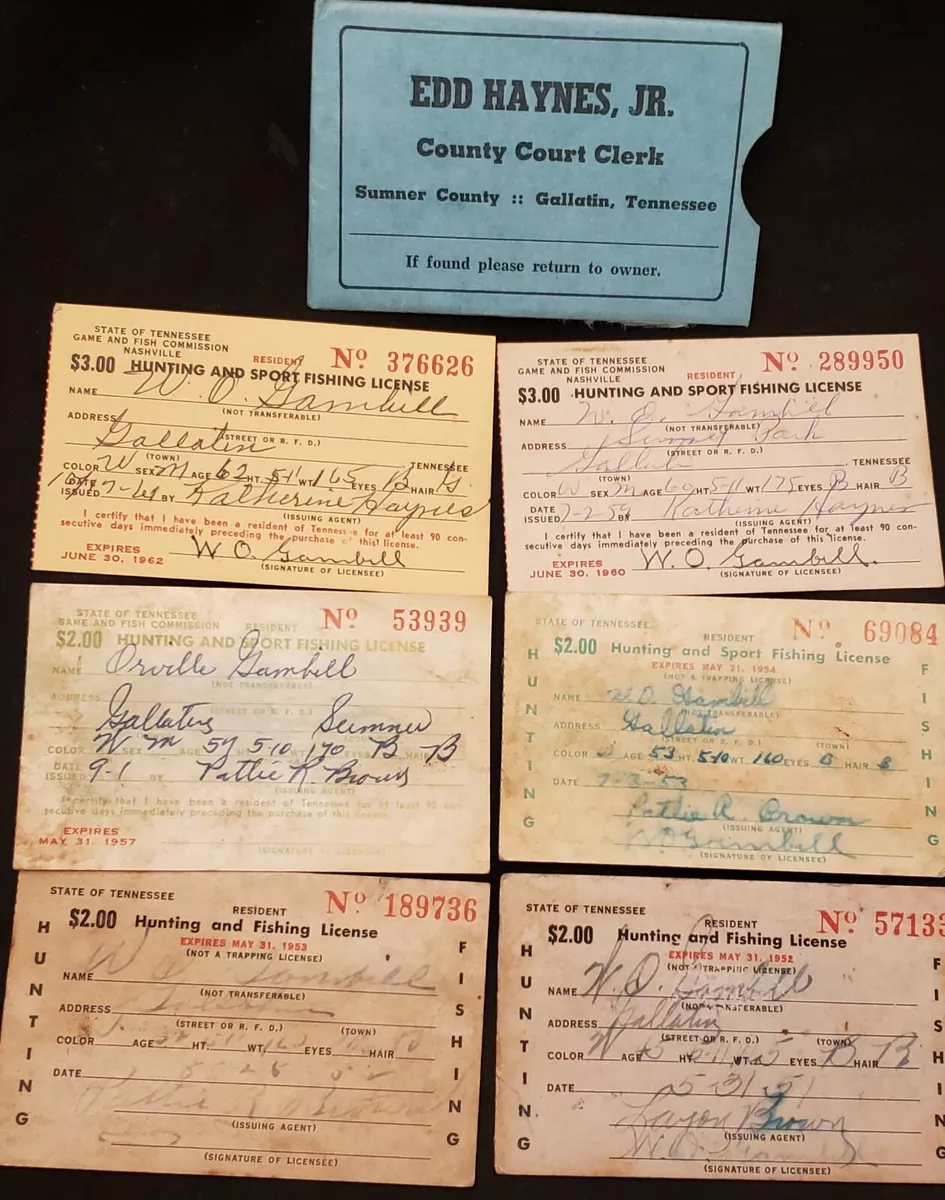 EDD HAYNES, JR.
County Court Clerk
Sumner County :: Gallatin, Tennessee
If found please return to owner.
STATE OF TENNESSEE
GAME AND FISH COMMISSION
NASHVILLE
RESIDENT Nº 376626
$3.00 HUNTING AND SPORT FISHING LICENSE
NAME W. O. Gambill
(NOT TRANSFERABLE)
ADDRESS
(STREET OR R. F. D.)
Gallatin
(TOWN) TENNESSEE
COLOR W SEX M AGE 62 HT. 5-11 WT 165 EYES B HAIR G
DATE
ISSUED 7-61 BY Katherine Haynes
(ISSUING AGENT)
I certify that I have been a resident of Tennessee for at least 90 con-
secutive days immediately preceding the purchase of this license.
EXPIRES
JUNE 30, 1962 W. O. Gambill
(SIGNATURE OF LICENSEE)
STATE OF TENNESSEE
GAME AND FISH COMMISSION
NASHVILLE
RESIDENT Nº 289950
$3.00 HUNTING AND SPORT FISHING LICENSE
NAME W. O. Gambill
(NOT TRANSFERABLE)
ADDRESS Park
(STREET OR R. F. D.)
Gallatin
(TOWN) TENNESSEE
COLOR W SEX M AGE 60 HT. 5-11 WT 175 EYES B HAIR B
DATE
ISSUED 7-2-59 BY Katherine Haynes
(ISSUING AGENT)
I certify that I have been a resident of Tennessee for at least 90 con-
secutive days immediately preceding the purchase of this license.
EXPIRES
JUNE 30, 1960 W. O. Gambill.
(SIGNATURE OF LICENSEE)
STATE OF TENNESSEE
GAME AND FISH COMMISSION RESIDENT Nº 53939
$2.00 HUNTING AND SPORT FISHING LICENSE
NAME Orville Gambill
(NOT TRANSFERABLE)
ADDRESS
(STREET OR R. F. D.)
Gallatin Sumner
COLOR W SEX M 57 5-10 170 B HAIR B
DATE
ISSUED 9-1 BY Pattie R. Brown
(ISSUING AGENT)
I certify that I have been a resident of Tennessee for at least 90 con-
secutive days immediately preceding the purchase of this license.
EXPIRES
MAY 31, 1957
(SIGNATURE OF LICENSEE)
STATE OF TENNESSEE
RESIDENT Nº 69084
$2.00 Hunting and Sport Fishing License
EXPIRES MAY 31, 1954
(NOT A TRAPPING LICENSE)
NAME W. O. Gambill
(NOT TRANSFERABLE)
ADDRESS Gallatin
(STREET OR R. F. D.) (TOWN)
COLOR AGE 53 HT. 5-10 WT. 160 EYES B HAIR B
DATE 7-3-53
Pattie R. Brown
(ISSUING AGENT)
W O Gambill
(SIGNATURE OF LICENSEE)
HUNTING
FISHING
STATE OF TENNESSEE
RESIDENT Nº 189736
$2.00 Hunting and Fishing License
EXPIRES MAY 31, 1953
(NOT A TRAPPING LICENSE)
NAME W O Gambill
(NOT TRANSFERABLE)
ADDRESS
(STREET OR R. F. D.) (TOWN)
COLOR AGE HT. WT. EYES HAIR
DATE
(ISSUING AGENT)
(SIGNATURE OF LICENSEE)
HUNTING
FISHING
STATE OF TENNESSEE
RESIDENT Nº 57133
$2.00 Hunting and Fishing License
EXPIRES MAY 31, 1952
(NOT A TRAPPING LICENSE)
NAME W. O. Gambill
(NOT TRANSFERABLE)
ADDRESS Gallatin
(STREET OR R. F. D.) (TOWN)
COLOR W AGE HT. 5-11 WT. EYES B HAIR B
DATE 5-31-51
Brown
(ISSUING AGENT)
(SIGNATURE OF LICENSEE)
HUNTING
FISHING